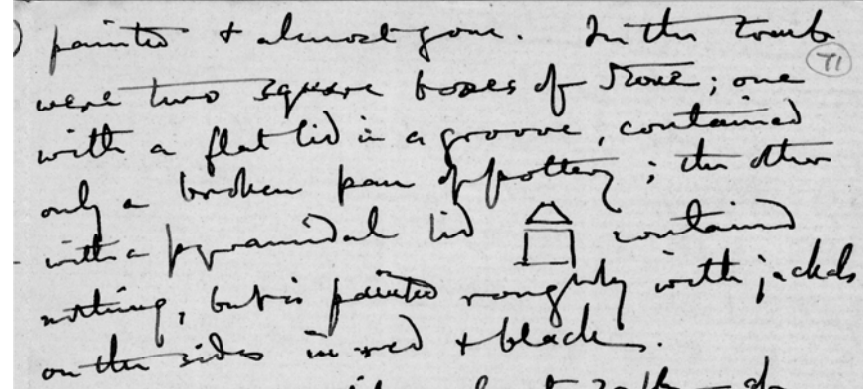 painted & almost gone. In the tomb
71
were two square boxes of stone; one
with a flat lid in a groove, contained
only a broken pan of pottery; the other
with a pyramidal lid contained
nothing, but is painted roughly with jackals
on the sides in red & black.